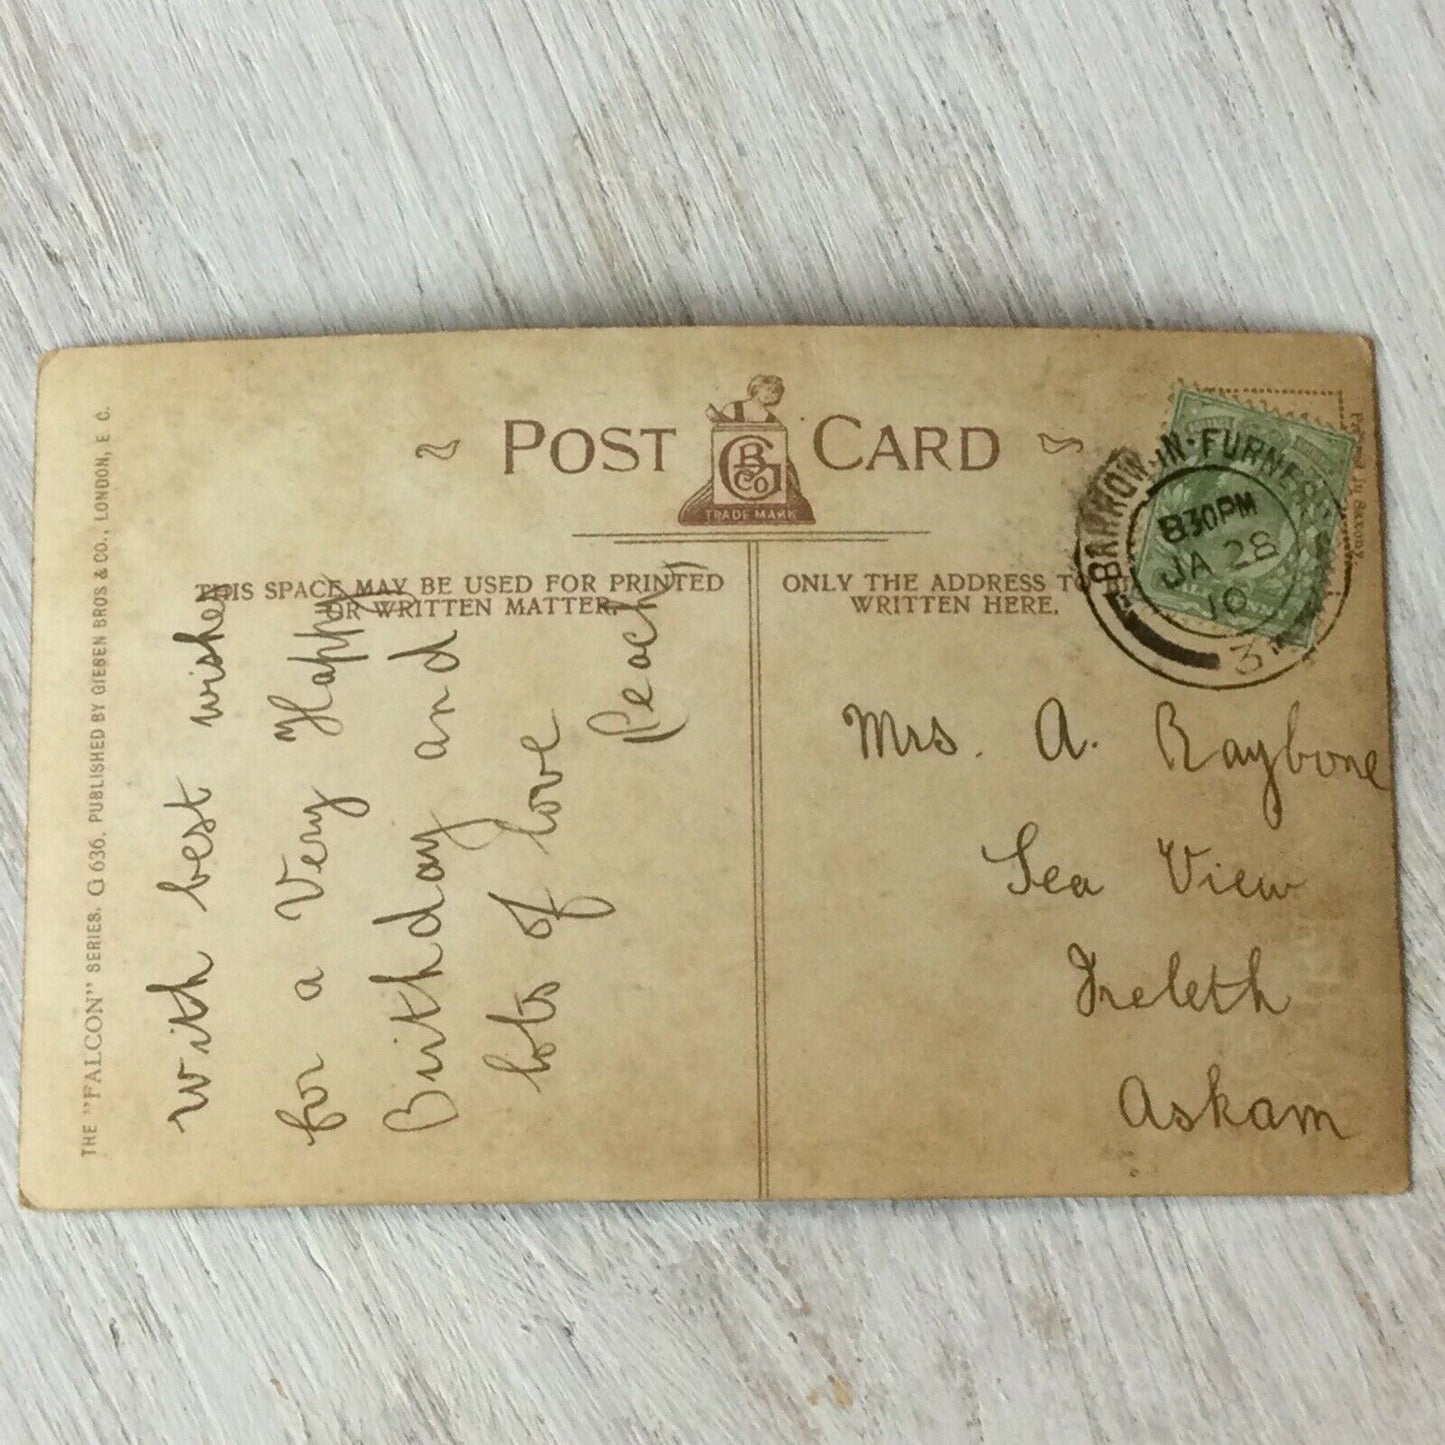 POST CARD
G B CO
TRADE MARK
THIS SPACE MAY BE USED FOR PRINTED
OR WRITTEN MATTER.
ONLY THE ADDRESS TO BE
WRITTEN HERE.
THE "FALCON" SERIES. G 636. PUBLISHED BY GIESEN BROS & CO., LONDON, E. C.
With best wishes
for a Very Happy
Birthday and
lots of love
Peach
BARROW-IN-FURNESS
8.30PM
JA 28
10
3
Mrs. A. Raybone
Sea View
Ireleth
Askam